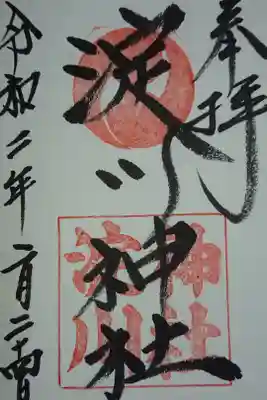 奉拝
淀川神社
神社
淀川
令和二年二月二十四日